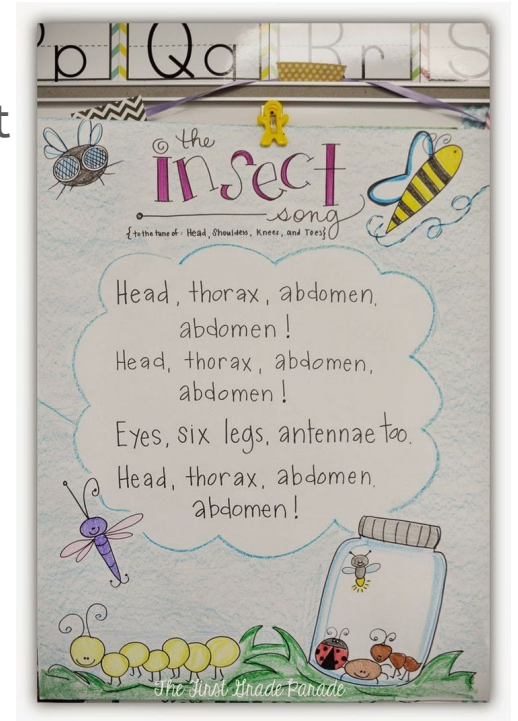 Pp Qq Rr S
t
the
insect
song
{to the tune of: Head, Shoulders, Knees, and Toes}
Head, thorax, abdomen,
abdomen!
Head, thorax, abdomen,
abdomen!
Eyes, six legs, antennae too.
Head, thorax, abdomen,
abdomen!
The First Grade Parade